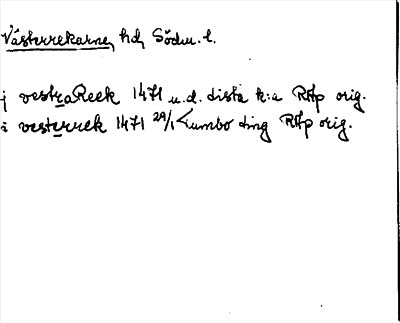 Västerrekarne, hd, Södm. l.
j vestra Reek 1471 u.d. dista k:a RAp orig.
i vesterrek 1471 29/1 Lumbo ting RAp orig.